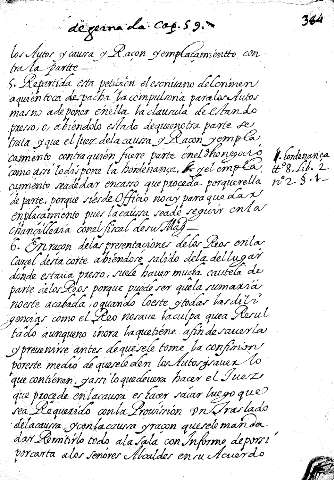 de gernada Cap. 59.
344
los Autos y causa y Raçon y emplaçamientto con
tra la partte
5. Repartida esta petiçion el escrivano del crimen
aquien toca despacha la compulsoria para los Autos
mas no ade poner en ella la clausula de estando
preso, e abiendolo estado de que notra parte se
trata y que el Juez de la causa y Raçon y empla
camiento contra quien fuere parte en el negoçio
como asi lo dispone la hordenança y el empla
camiento se a de dar en caso que proceda por querella
de parte, porque si es de offiçio no ay para que dar
emplaçamiento pues la causa se a de seguir en la
chancilleria con el fiscal de su Magd
hordenança
ttº 8. Lib. 2.
nº 2. § 1.
6. En raçon de las presentaciones de los Reos en la
carçel desta corte abiendose salido de la del lugar
donde estava preso, suele haver mucha cautela de
parte de los Reos porque puede ser que la sumaria
no este acabada, o quando lo este y todas las dili
gençias como el Reo no save la culpa que a Resul
tado aunque no ignora la que tiene a fin de saverla
y prevenirse antes de que se le tome la confision
por este medio de que se le den los Autos y saver lo
que contienen, y assi lo que devera hacer el Juez
que procede en la causa es hacer sacar luego que
sea Requerido con la Provission un Traslado
de la causa, y con la causa y raçon que se le manda
dar Remitirlo todo a la sala con Informe de por si
por carta a los señores Alcaldes en su Acuerdo